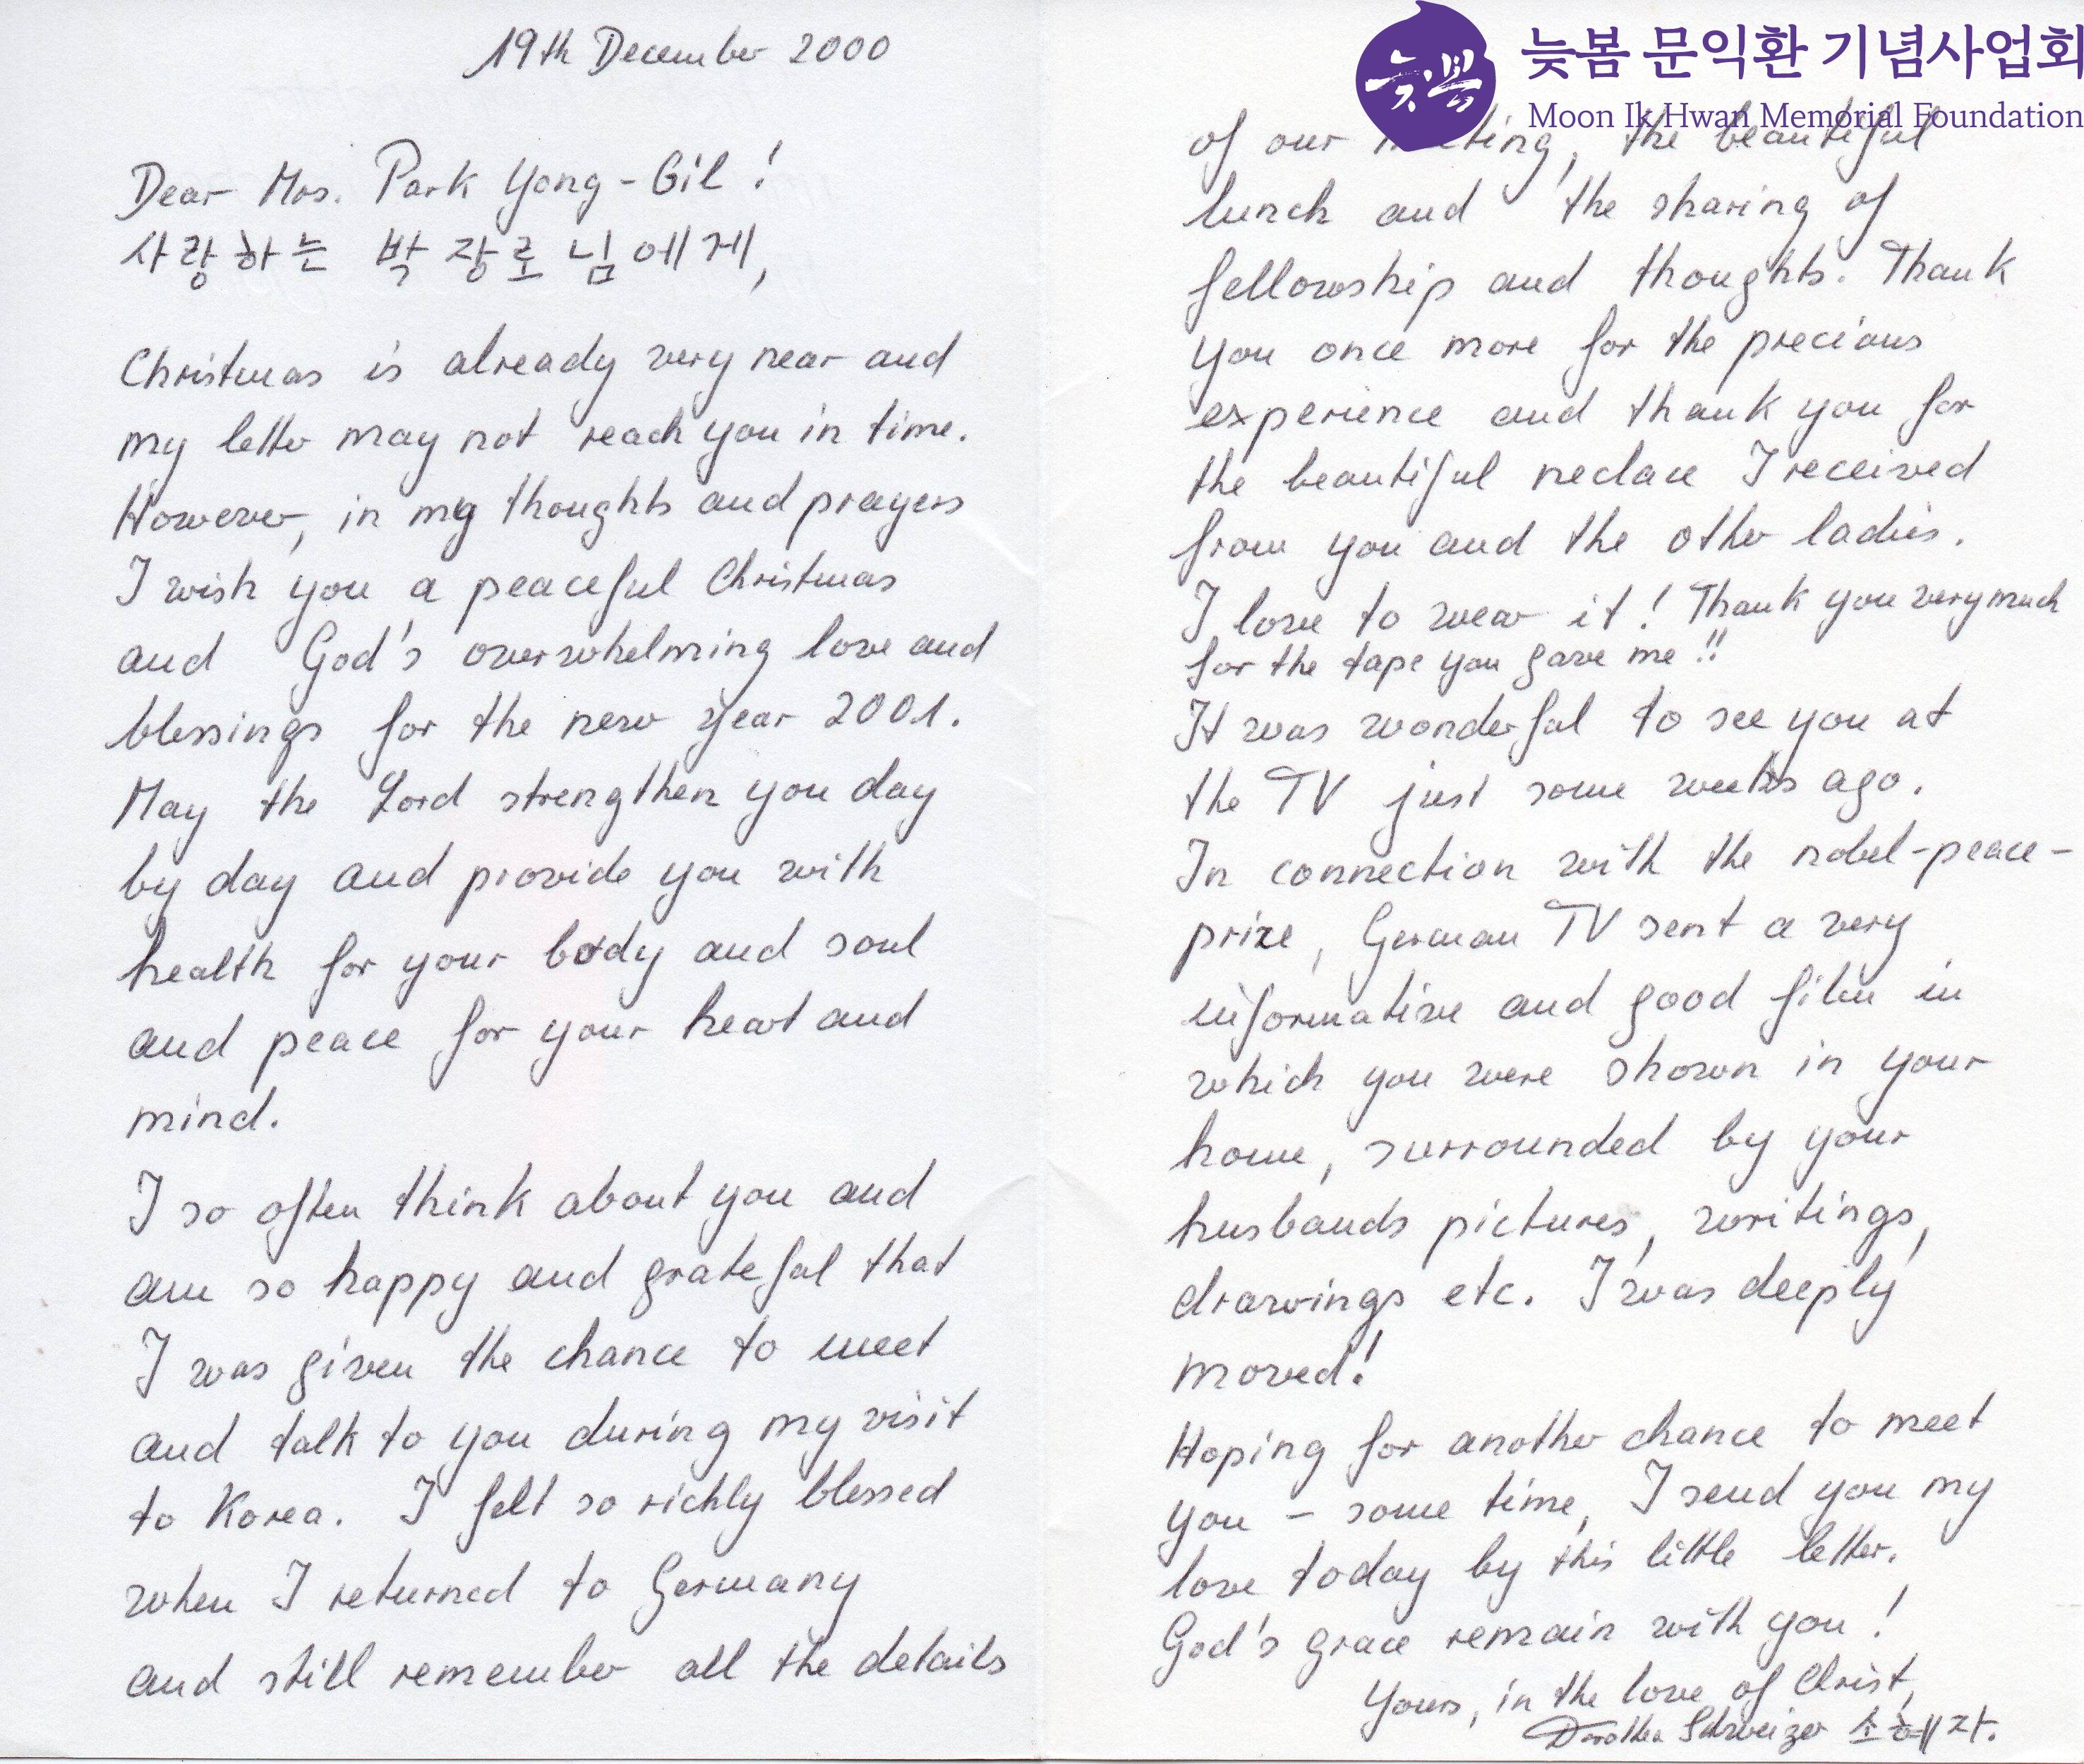 19th December 2000
Dear Mrs. Park Yong-Gil!
사랑하는 박 장로님에게,
Christmas is already very near and
my letter may not reach you in time.
However, in my thoughts and prayers
I wish you a peaceful Christmas
and God's overwhelming love and
blessings for the new year 2001.
May the Lord strengthen you day
by day and provide you with
health for your body and soul
and peace for your heart and
mind.
I so often think about you and
am so happy and grateful that
I was given the chance to meet
and talk to you during my visit
to Korea. I felt so richly blessed
when I returned to Germany
and still remember all the details
늦봄 문익환 기념사업회
늦봄
Moon Ik Hwan Memorial Foundation
of our meeting, the beautiful
lunch and the sharing of
fellowship and thoughts. Thank
you once more for the precious
experience and thank you for
the beautiful neclace I received
from you and the other ladies.
I love to wear it! Thank you very much
for the tape you gave me!!
It was wonderful to see you at
the TV just some weeks ago.
In connection with the nobel-peace-
prize, German TV sent a very
informative and good film in
which you were shown in your
home, surrounded by your
husbands pictures, writings,
drawings etc. I was deeply
moved!
Hoping for another chance to meet
you - some time, I send you my
love today by this little letter.
God's grace remain with you!
Yours, in the love of Christ,
Dorothea Schweizer 소혜자.